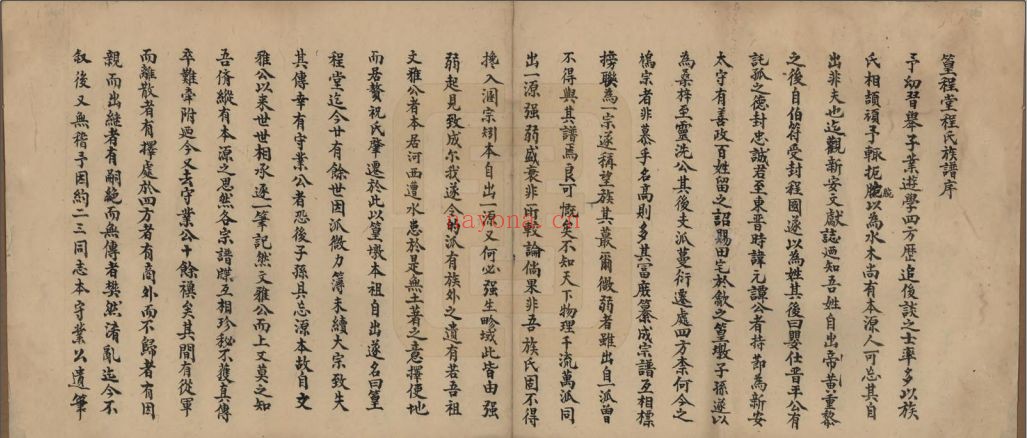 篁程堂程氏族譜序
予幼習舉子業遊學四方歷追後談之士率多以族
氏相頡頏予輙扼腕以為水木尚有本源人可忘其自
出非夫也迄觀新安文獻誌廼知吾姓自出帝黄重黎
之後自伯符受封程國遂以為姓其後曰嬰仕晋平公有
託孤之德封忠誠君至東晋時諱元譚公者持節為新安
太守有善政百姓留之詔賜田宅於歙之篁墩子孫遂以
為桑梓至靈洗公其後支派蔓衍遷處四方柰何今之
槁宗者非慕乎名高則多其富庶纂成宗譜互相標
榜聯為一宗遂稱望族其蕞爾微弱者雖出自一派曾
不得與其譜焉良可慨矣不知天下物理千流萬派同
出一源强弱盛衰非所較論倘果非吾族氏固不得
攙入溷宗矧本自出一源又何必强生畛域此皆由强
弱起見致成尔我遂令的派有族外之遺有若吾祖
文雅公者本居河西遭水患於是無土著之意擇便地
而居贅祝氏肇遷於此以篁墩本祖自出遂名曰篁
程堂迄今廿有餘世因派微力簿未續大宗致失
其傳幸有守業公者恐後子孫具忘源本故自文
雅公以来世世相承逐一筆記然文雅公而上又莫之知
吾儕縱有本源之思然各宗譜牒互相珍秘不獲真傳
卒難牽附廼今又去守業公十餘禩矣其間有從軍
而離散者有擇處於四方者有商外而不歸者有因
親而出継者有嗣絶而無傳者樊然淆亂迄今不
叙後又無稽予因約二三同志本守業公遺筆
腕
nayona.cn